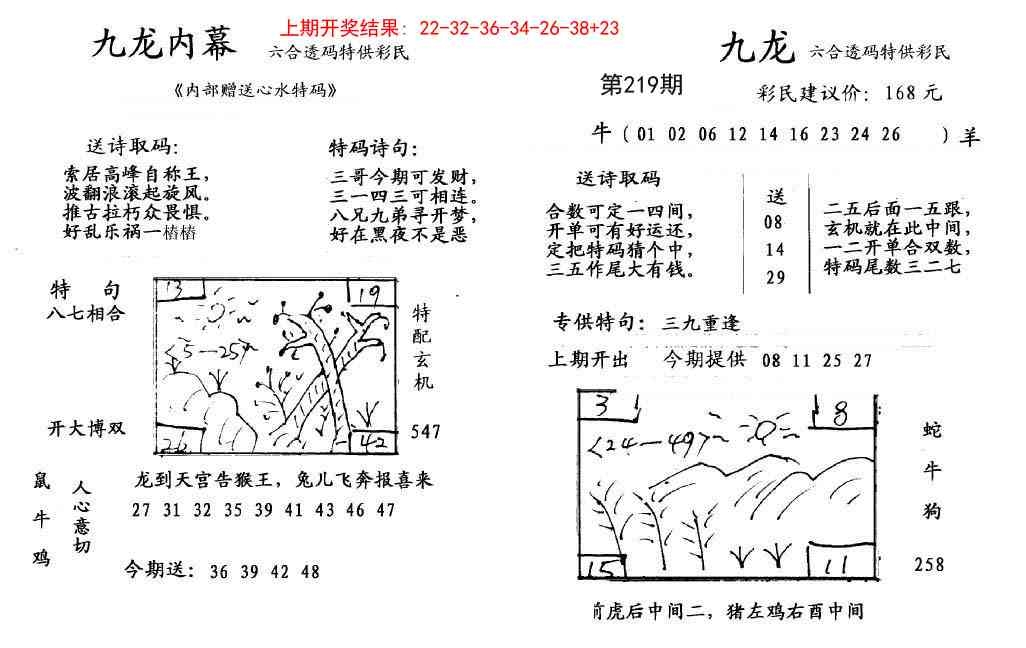 上期开奖结果：22-32-36-34-26-38+23
九龙内幕 六合透码特供彩民
《内部赠送心水特码》
送诗取码：
索居高峰自称王，
波翻浪滚起旋风。
推古拉朽众畏惧。
好乱乐祸一樁樁
特码诗句：
三哥今期可发财，
三一四三可相连。
八兄九弟寻开梦，
好在黑夜不是恶
特 句
八七相合
开大博双
13
19
<5-25>
26
42
特配玄机
547
鼠
牛
鸡
人心意切
龙到天宫告猴王，兔儿飞奔报喜来
27 31 32 35 39 41 43 46 47
今期送：36 39 42 48
九龙 六合透码特供彩民
第219期
彩民建议价：168元
牛（01 02 06 12 14 16 23 24 26 ）羊
送诗取码
合数可定一四间，
开单可有好运还，
定把特码猜个中，
三五作尾大有钱。
送
08
14
29
二五后面一五跟，
玄机就在此中间，
一二开单合双数，
特码尾数三二七
专供特句：三九重逢
上期开出 今期提供 08 11 25 27
3
8
<24-49>
15
11
蛇
牛
狗
258
前虎后中间二，猪左鸡右酉中间